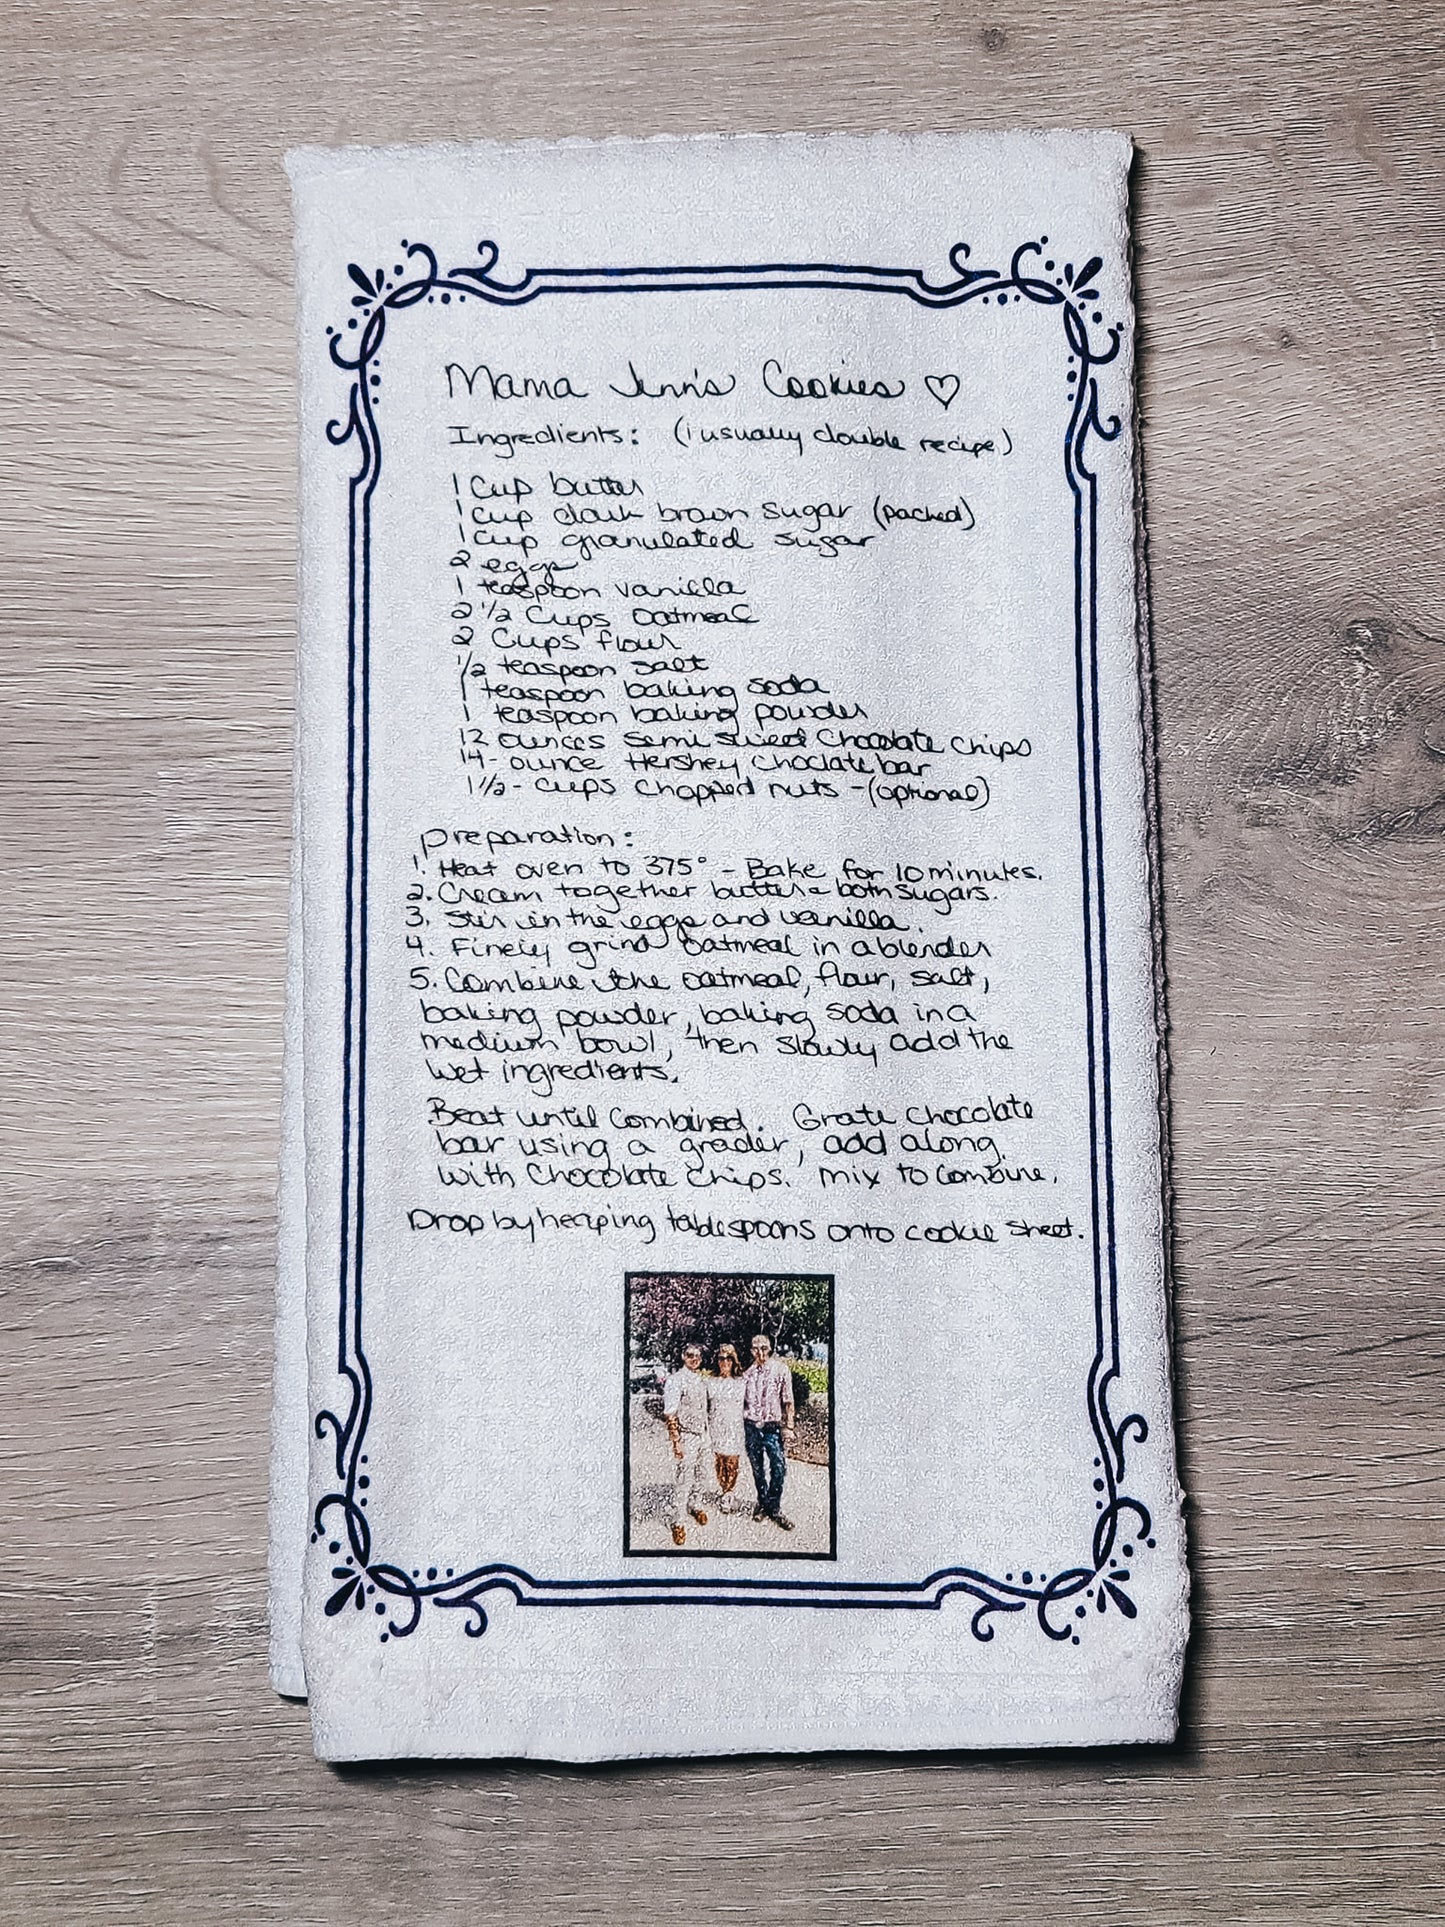 Mama Jenn's Cookies ♡
Ingredients: (i usually double recipe)
1 Cup butter
1 Cup dark brown sugar (packed)
1 Cup granulated sugar
2 eggs
1 teaspoon vanilla
2 1/2 Cups Oatmeal
2 Cups flour
1/2 teaspoon salt
1 teaspoon baking soda
1 teaspoon baking powder
12 ounces semi chocolate chips
14- ounce Hershey choclate bar
1 1/2 - cups chopped nuts -(optional)
preparation:
1. Heat oven to 375° - Bake for 10 minutes.
2. Cream together butter & both sugars.
3. Stir in the eggs and vanilla.
4. Finely grind oatmeal in a blender
5. Combine the oatmeal, flour, salt,
baking powder, baking soda in a
medium bowl, then slowly add the
wet ingredients.
Beat until combined. Grate chocolate
bar using a grader, add along
with chocolate chips. mix to combine.
Drop by heaping tablespoons onto cookie sheet.